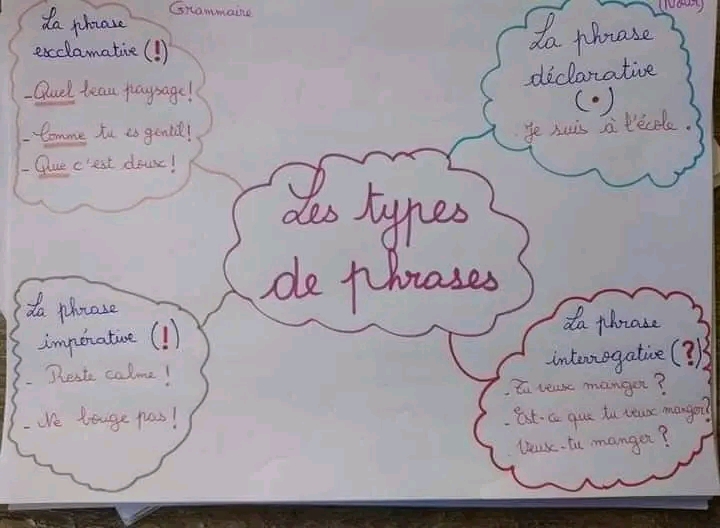 Grammaire
(Nour)
La phrase
exclamative (!)
- Quel beau paysage!
- Comme tu es gentil!
- Que c'est doux!
La phrase
déclarative
(.)
. Je suis à l'école.
Les types
de phrases
La phrase
impérative (!)
- Reste calme!
- Ne bouge pas!
La phrase
interrogative (?)
- Tu veux manger?
- Est-ce que tu veux manger?
. Veux-tu manger?